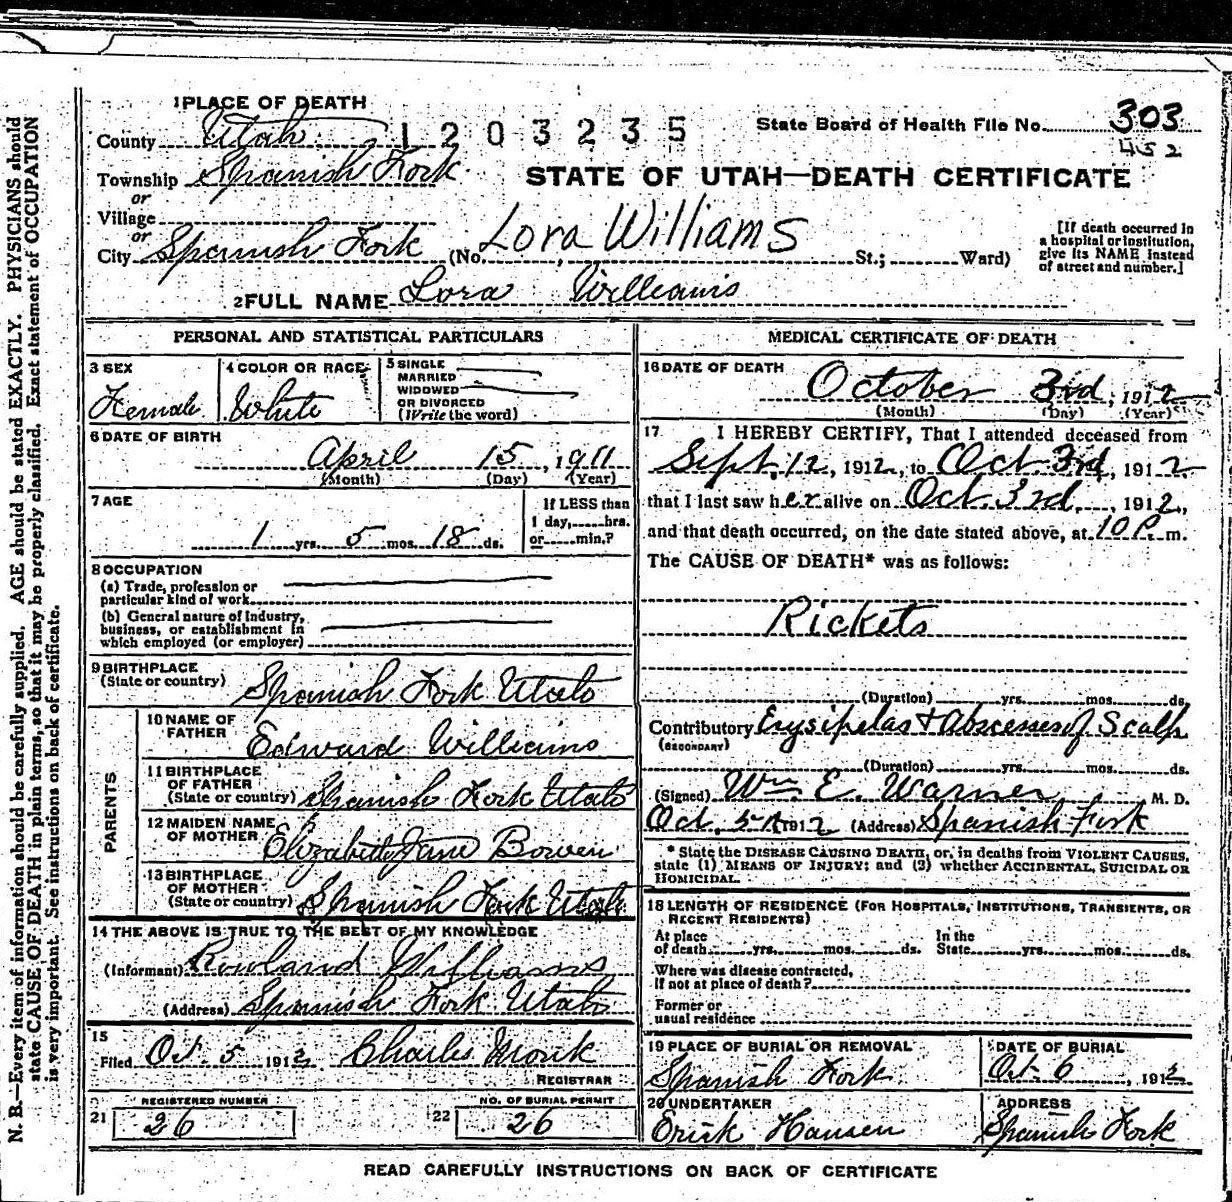 1 PLACE OF DEATH
County Utah 1203235 State Board of Health File No. 303
452
Township Spanish Fork STATE OF UTAH—DEATH CERTIFICATE
or
Village
or
City Spanish Fork (No. Lora Williams St.; Ward)
[If death occurred in a hospital or institution, give its NAME instead of street and number.]
2 FULL NAME Lora Williams
PERSONAL AND STATISTICAL PARTICULARS
3 SEX
Female
4 COLOR OR RACE
White
5 SINGLE
MARRIED
WIDOWED
OR DIVORCED
(Write the word)
6 DATE OF BIRTH
April 15, 1911
(Month) (Day) (Year)
7 AGE
1 yrs. 5 mos. 18 ds.
If LESS than
1 day, hrs.
or min.?
8 OCCUPATION
(a) Trade, profession or
particular kind of work
(b) General nature of industry,
business, or establishment in
which employed (or employer)
9 BIRTHPLACE
(State or country) Spanish Fork Utah
PARENTS
10 NAME OF
FATHER Edward Williams
11 BIRTHPLACE
OF FATHER
(State or country) Spanish Fork Utah
12 MAIDEN NAME
OF MOTHER Elizabeth Jane Bowen
13 BIRTHPLACE
OF MOTHER
(State or country) Spanish Fork Utah
14 THE ABOVE IS TRUE TO THE BEST OF MY KNOWLEDGE
(Informant) Rowland Williams
(Address) Spanish Fork Utah
15
Filed Oct. 5 1912 Charles Monk
REGISTRAR
REGISTERED NUMBER
21 26
NO. OF BURIAL PERMIT
22 26
MEDICAL CERTIFICATE OF DEATH
16 DATE OF DEATH
October 3rd, 1912
(Month) (Day) (Year)
17 I HEREBY CERTIFY, That I attended deceased from
Sept. 12, 1912, to Oct 3rd, 1912
that I last saw her alive on Oct. 3rd, 1912,
and that death occurred, on the date stated above, at 10 P. m.
The CAUSE OF DEATH* was as follows:
Rickets
(Duration) yrs. mos. ds.
Contributory Erysipelas + Abscesses of Scalp
(SECONDARY)
(Duration) yrs. mos. ds.
(Signed) Wm. E. Warner M. D.
Oct. 5th 1912 (Address) Spanish Fork
* State the DISEASE CAUSING DEATH, or, in deaths from VIOLENT CAUSES,
state (1) MEANS OF INJURY; and (2) whether ACCIDENTAL, SUICIDAL OR
HOMICIDAL.
18 LENGTH OF RESIDENCE (FOR HOSPITALS, INSTITUTIONS, TRANSIENTS, OR
RECENT RESIDENTS)
At place
of death yrs. mos. ds.
In the
State yrs. mos. ds.
Where was disease contracted,
if not at place of death?
Former or
usual residence
19 PLACE OF BURIAL OR REMOVAL
Spanish Fork
DATE OF BURIAL
Oct. 6, 1912
20 UNDERTAKER
Erick Hansen
ADDRESS
Spanish Fork
READ CAREFULLY INSTRUCTIONS ON BACK OF CERTIFICATE
N. B.—Every item of information should be carefully supplied. AGE should be stated EXACTLY. PHYSICIANS should
state CAUSE OF DEATH in plain terms, so that it may be properly classified. Exact statement of OCCUPATION
is very important. See instructions on back of certificate.